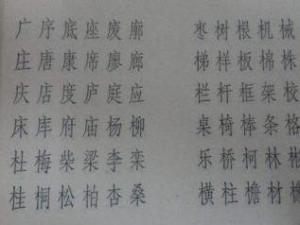 广序底座废廓 枣树根机械
庄唐康席廖廊 梯样板棉株
庆店度庐庭应 栏杆框架校
床库府庙杨柳 桌椅棒条格
杜梅柴梁李栾 乐桥柯林彬
桂桐松柏杏桑 横柱檐材